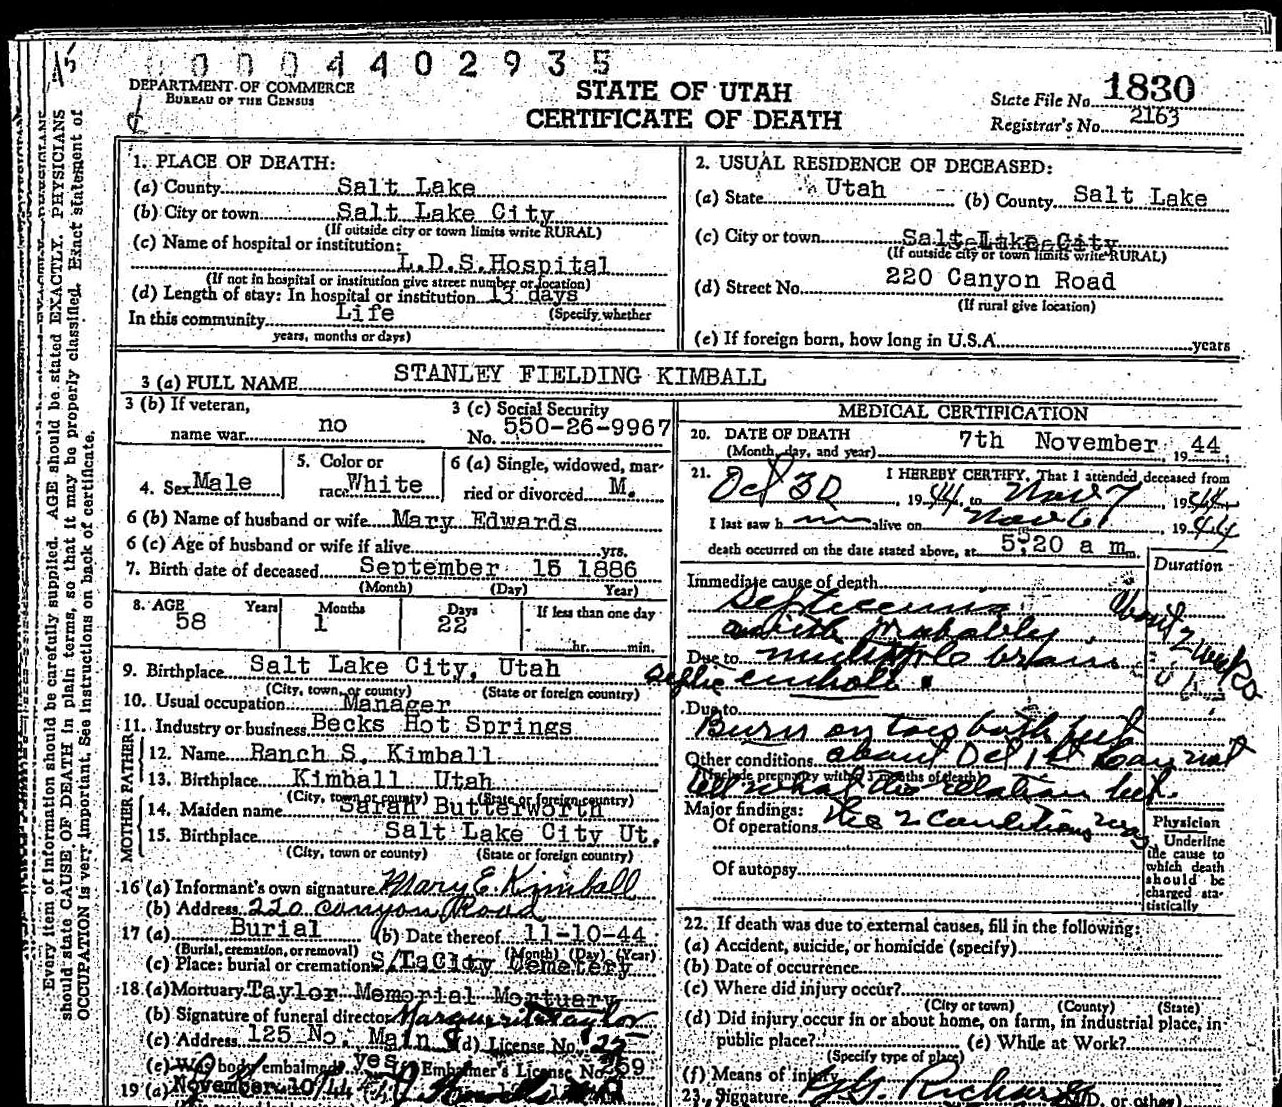 0004402935
DEPARTMENT OF COMMERCE
BUREAU OF THE CENSUS
STATE OF UTAH
CERTIFICATE OF DEATH
State File No. 1830
Registrar's No. 2163
Every item of information should be carefully supplied. AGE should be stated EXACTLY. PHYSICIANS
should state CAUSE OF DEATH in plain terms, so that it may be properly classified. Exact statement of
OCCUPATION is very important. See instructions on back of certificate.
1. PLACE OF DEATH:
(a) County Salt Lake
(b) City or town Salt Lake City
(If outside city or town limits write RURAL)
(c) Name of hospital or institution:
L.D.S. Hospital
(If not in hospital or institution give street number or location)
(d) Length of stay: In hospital or institution 13 days
In this community Life (Specify whether
years, months or days)
2. USUAL RESIDENCE OF DECEASED:
(a) State Utah (b) County Salt Lake
(c) City or town Salt Lake City
(If outside city or town limits write RURAL)
(d) Street No. 220 Canyon Road
(If rural give location)
(e) If foreign born, how long in U.S.A. years
3 (a) FULL NAME STANLEY FIELDING KIMBALL
3 (b) If veteran,
name war no
3 (c) Social Security
No. 550-26-9967
4. Sex Male
5. Color or
race White
6 (a) Single, widowed, mar-
ried or divorced M.
6 (b) Name of husband or wife Mary Edwards
6 (c) Age of husband or wife if alive yrs.
7. Birth date of deceased September 15 1886
(Month) (Day) Year)
8. AGE Years Months Days If less than one day
58 1 22
hr. min.
9. Birthplace Salt Lake City, Utah
(City, town, or county) (State or foreign country)
10. Usual occupation Manager
11. Industry or business Becks Hot Springs
FATHER
12. Name Ranch S. Kimball
13. Birthplace Kimball Utah
(City, town or county) (State or foreign country)
MOTHER
14. Maiden name Sarah Butterworth
15. Birthplace Salt Lake City Ut.
(City, town or county) (State or foreign country)
16 (a) Informant's own signature Mary E. Kimball
(b) Address 220 Canyon Road
17 (a) Burial (b) Date thereof 11-10-44
(Burial, cremation, or removal) (Month) (Day) (Year)
(c) Place: burial or cremation City Cemetery
18 (a) Mortuary Taylor Memorial Mortuary
(b) Signature of funeral director Marguerite Taylor
(c) Address 125 No. Main (d) License No.
(e) Was body embalmed yes (f) Embalmer's License No.
19 (a) November 10/44
MEDICAL CERTIFICATION
20. DATE OF DEATH 7th November, 1944
(Month, day, and year)
21. I HEREBY CERTIFY, That I attended deceased from
Oct 30, 1944 to Nov 7, 1944
I last saw him alive on Nov 6, 1944
death occurred on the date stated above, at 5:20 a m.
Duration
Immediate cause of death
Septicemia About 2 weeks
with probably
Due to multiple brain
septic emboli.
Due to
Burn on toes both feet
Other conditions about Oct 1st Can not
(Include pregnancy within 3 months of death)
tell what the relation bet.
Major findings:
Of operations the 2 conditions was
Of autopsy
Physician
Underline
the cause to
which death
should be
charged sta-
tistically
22. If death was due to external causes, fill in the following:
(a) Accident, suicide, or homicide (specify)
(b) Date of occurrence
(c) Where did injury occur?
(City or town) (County) (State)
(d) Did injury occur in or about home, on farm, in industrial place, in
public place? (e) While at Work?
(Specify type of place)
(f) Means of injury
23. Signature G.G. Richards (M.D. or other)